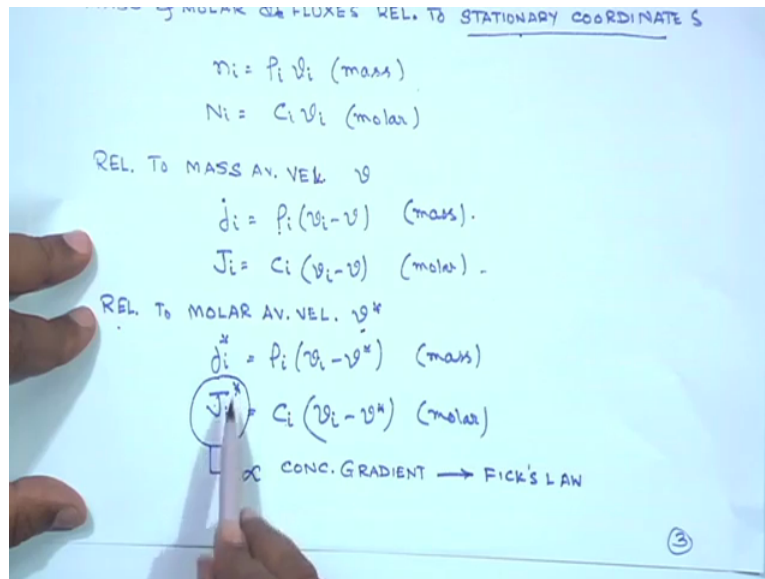 MOLAR FLUXES REL. TO STATIONARY COORDINATES
ni = ρi vi (mass)
Ni = Ci vi (molar)
REL. TO MASS AV. VEL v
ji = ρi (vi - v) (mass).
Ji = Ci (vi - v) (molar) -
REL. TO MOLAR AV. VEL. v*
ji* = ρi (vi - v*) (mass)
Ji* = Ci (vi - v*) (molar)
∝ CONC. GRADIENT → FICK'S LAW
3